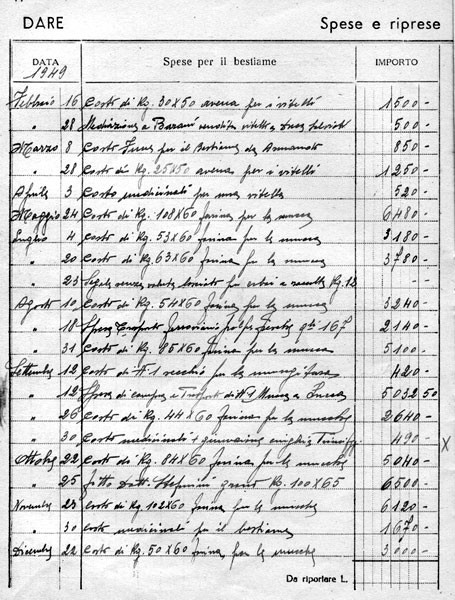 DARE Spese e riprese
DATA Spese per il bestiame IMPORTO
1949
Febbraio 16 Costo di Kg. 30x50 avena per i vitelli 1500-
" 28 Mediazione a vendita vitello a 500-
Marzo 8 Costo per il Bestiame da 850-
" 28 Costo di Kg. 25x50 avena per i vitelli 1250-
Aprile 3 Costo medicinali per una vitella 520-
Maggio 24 Costo di Kg. 108x60 farina per le mucca 6480-
Luglio 4 Costo di Kg. 53x60 farina per la mucca 3180-
" 20 Costo di Kg. 63x60 farina per la mucca 3780-
" 23 Segala senza per e raccolta Kg. 12
Agosto 10 Costo di Kg. 54x60 farina per la mucca 3240-
" 18 Spesa Trasporto 167 2140-
" 31 Costo di Kg. 85x60 farina per la mucca 5100-
Settembre 12 Costo di N° 1 secchio per la mungitura 420-
" 12 Spesa di compra e Trasporto di N° 1 Mucca a Lucca 5032 50
" 26 Costo di Kg. 44x60 farina per le mucche 2640-
" 30 Costo medicinali 490- X
Ottobre 22 Costo di Kg. 84x60 farina per le mucche 5040-
" 25 fitto Dott. Stefanini grano Kg. 100x65 6500-
Novembre 23 Costo di Kg. 102x60 farina per le mucche 6120-
" 30 Costo medicinali per il bestiame 1670-
Dicembre 22 Costo di Kg. 50x60 farina per le mucche 3000-
Da riportare L.